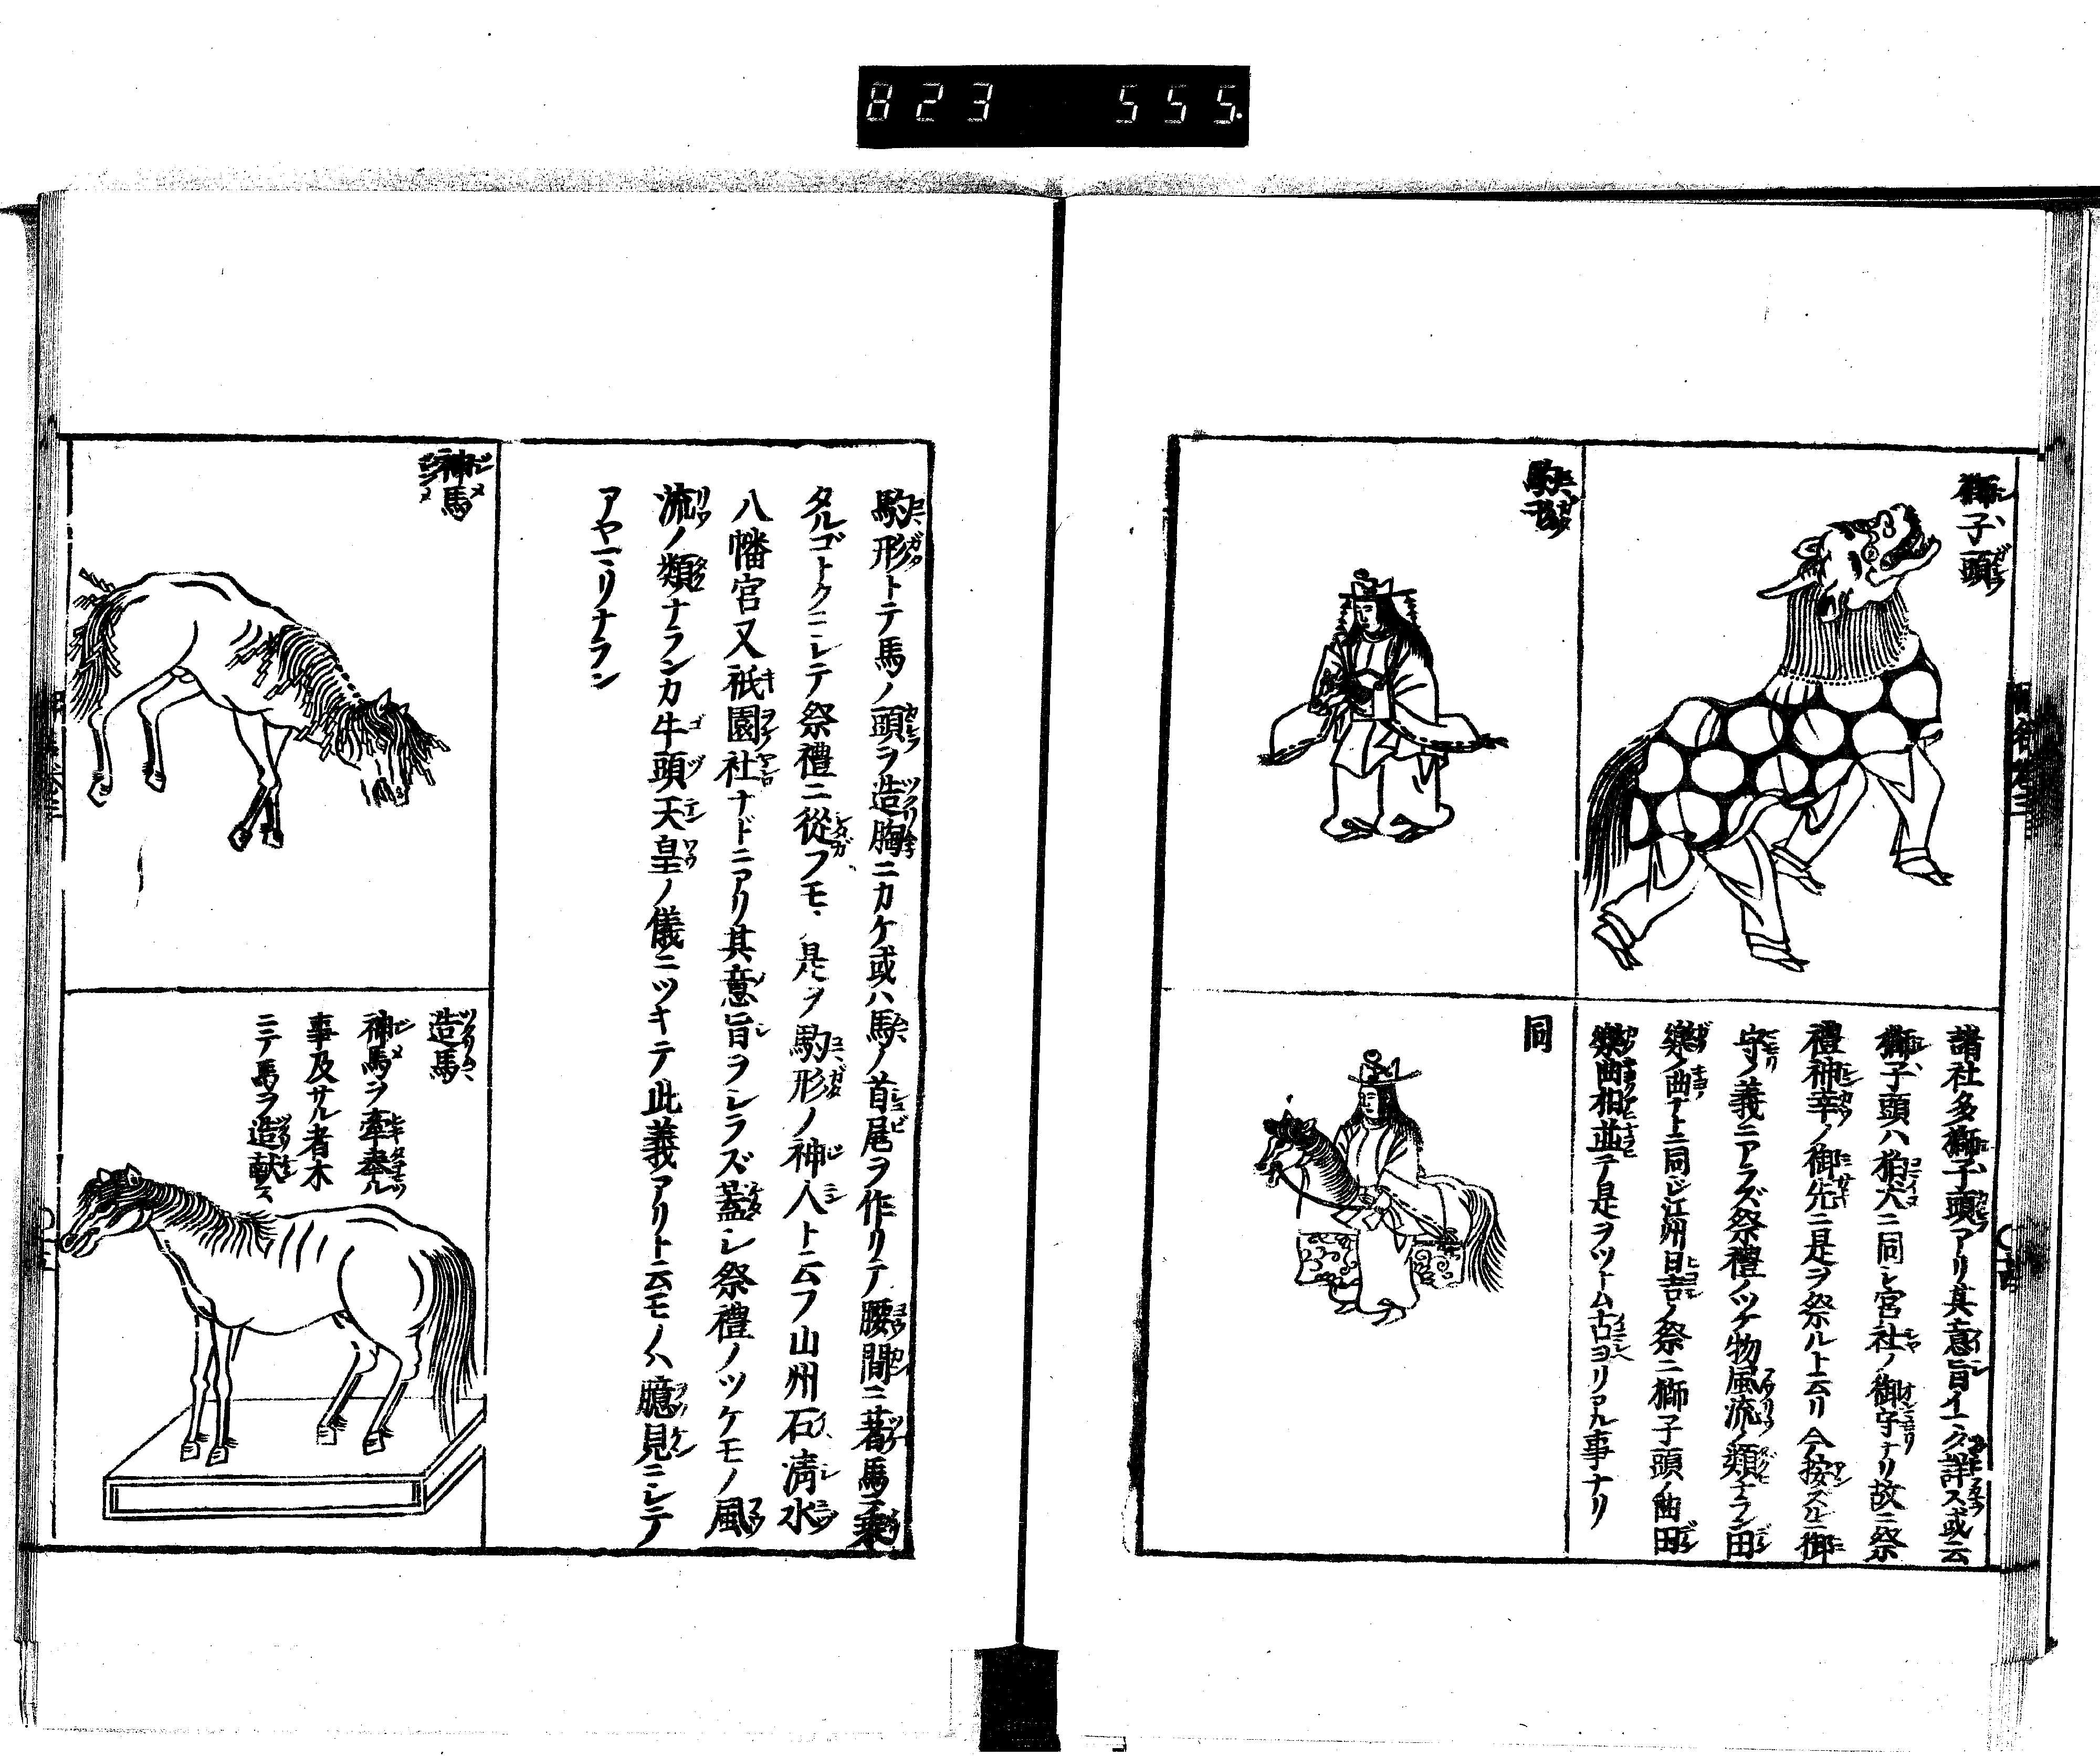 823 555.
獅子頭
諸社多獅子頭アリ其意旨イマタ詳ス或云
獅子頭ハ狛犬ニ同シ宮社ノ御守ナリ故ニ祭
禮神幸ノ御先ニ是ヲ祭ルト云リ今按ズルニ御
守ノ義ニアラズ祭禮ノツケ物風流ノ類ナラン田
樂ノ曲ナトニ同ジ江州日吉ノ祭ニ獅子頭ノ曲田
樂曲相並テ是ヲツトム古ヨリアル事ナリ
駒形
同
駒形トテ馬ノ頭ヲ造胸ニカケ或ハ馬ノ首尾ヲ作リテ腰間ニ著馬ニ乗
タルゴトクニシテ祭禮ニ從フモ是ヲ駒形ノ神人ト云フ山州石清水
八幡宮又祇園社ナドニアリ其意旨ヲシラズ蓋シ祭禮ノツケモノ風
流ノ類ナランカ牛頭天皇ノ儀ニツキテ此義アリト云モノハ臆見ニシテ
アヤマリナラン
神馬
造馬
神馬ヲ牽奉ル
事及サル者木
ニテ馬ヲ造献ス